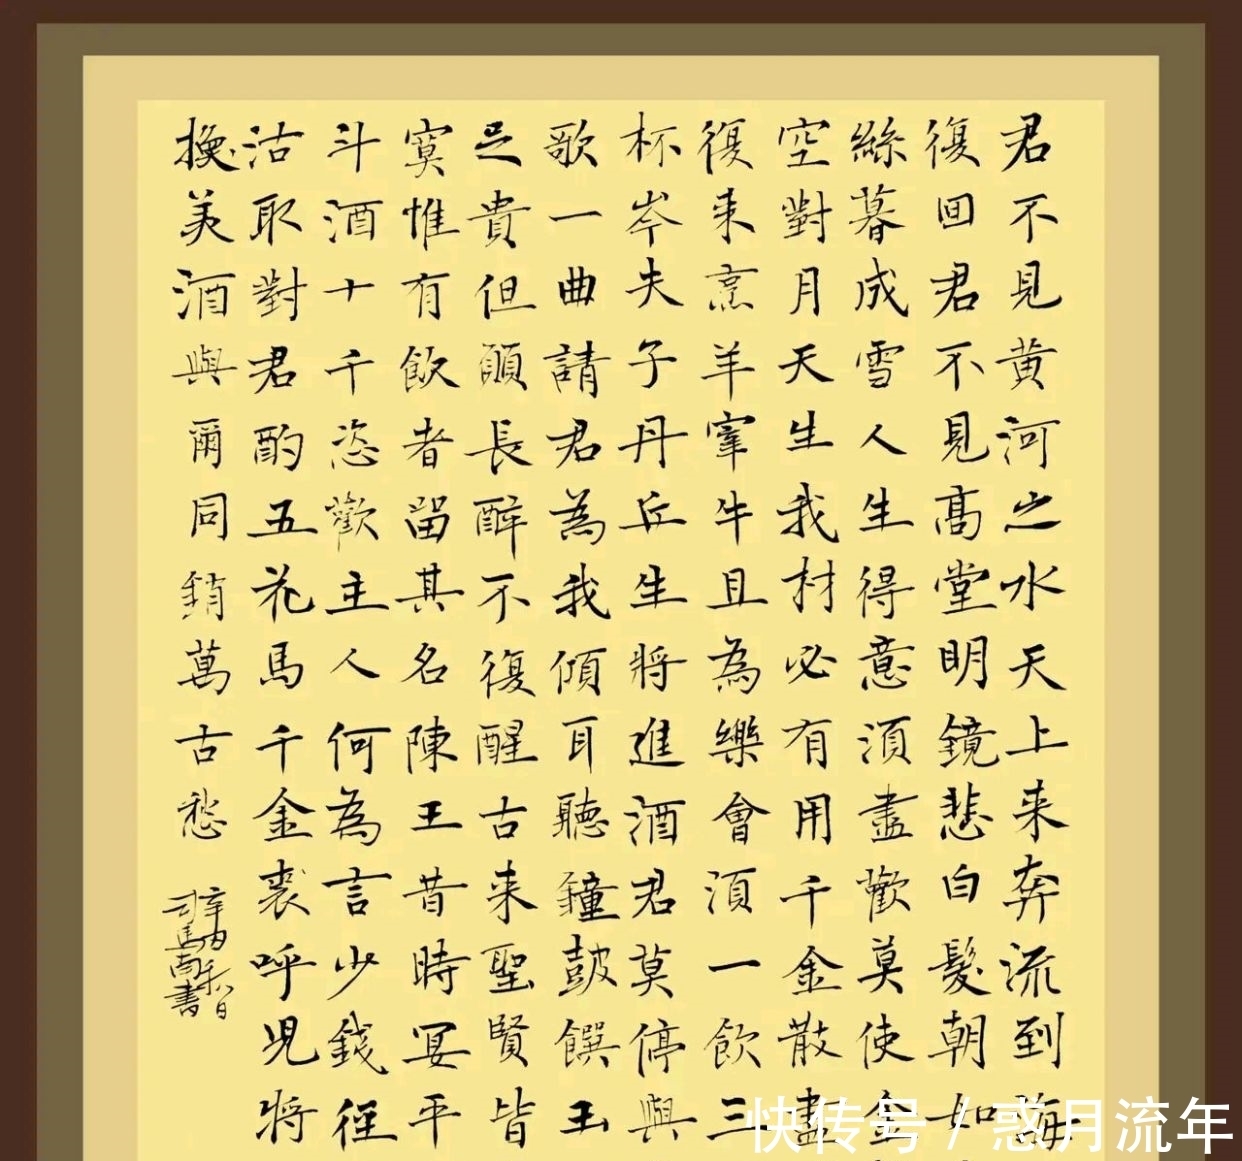 君不見黄河之水天上来奔流到海
復回君不見高堂明鏡悲白髮朝如
絲暮成雪人生得意須盡歡莫使金
空對月天生我材必有用千金散盡
復来烹羊宰牛且為樂會須一飲三
杯岑夫子丹丘生將進酒君莫停與
歌一曲請君為我傾耳聽鐘鼓饌玉
足貴但願長醉不復醒古来聖賢皆
寞惟有飲者留其名陳王昔時宴平
斗酒十千恣歡主人何為言少錢徑
沽取對君酌五花馬千金裘呼児將
換美酒與爾同銷萬古愁
司馬南書
快传号 / 惑月流年